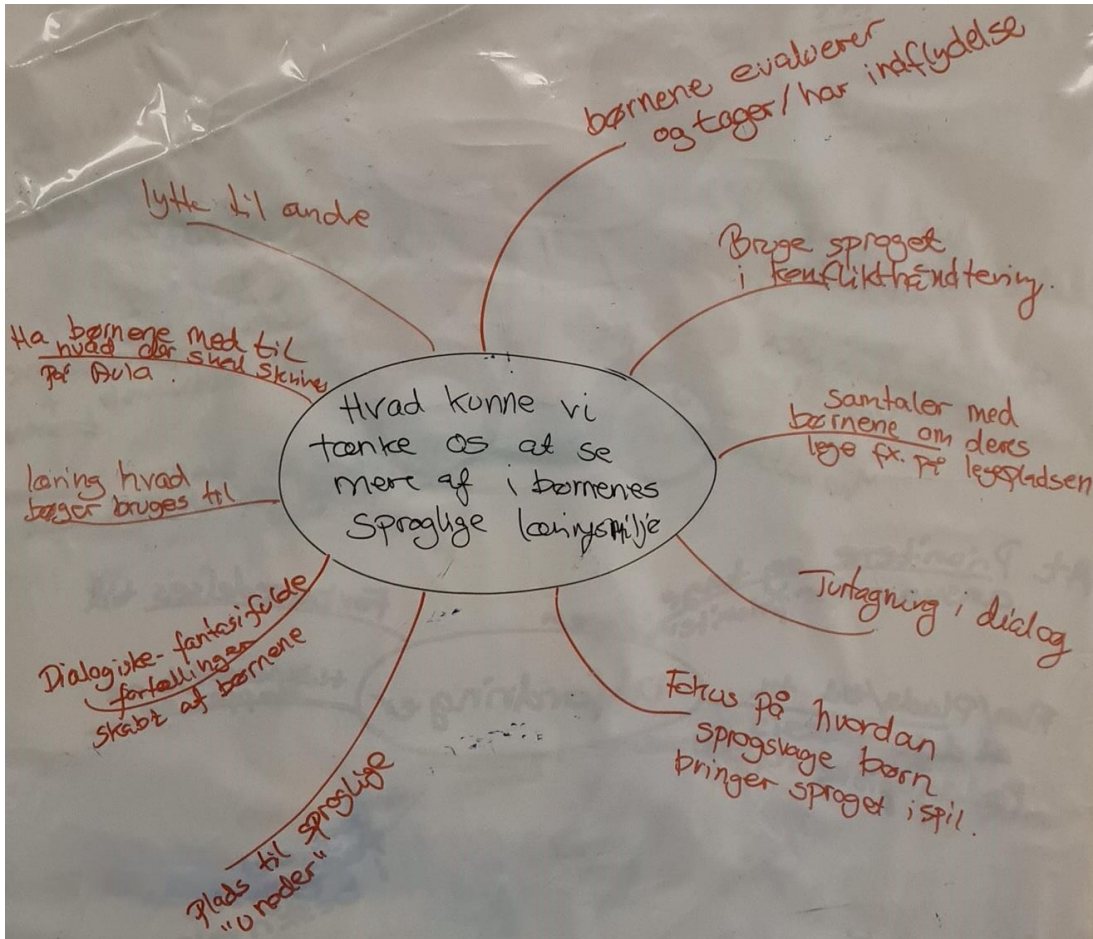 Hvad kunne vi
tænke os at se
mere af i børnenes
sproglige læringsmilje
børnene evaluerer
og tager/har indflydelse
Bruge sproget
i konflikthåndtering.
samtaler med
børnene om deres
lege fx. på legepladsen
Turtagning i dialog
Fokus på hvordan
sprogsvage børn
bringer sproget i spil.
Plads til sproglige
"unoder"
Dialogiske-fantasifulde
fortællinger
skabt af børnene
læring hvad
bøger bruges til
Ha børnene med til
hvad der skal skrives
på Aula.
lytte til andre